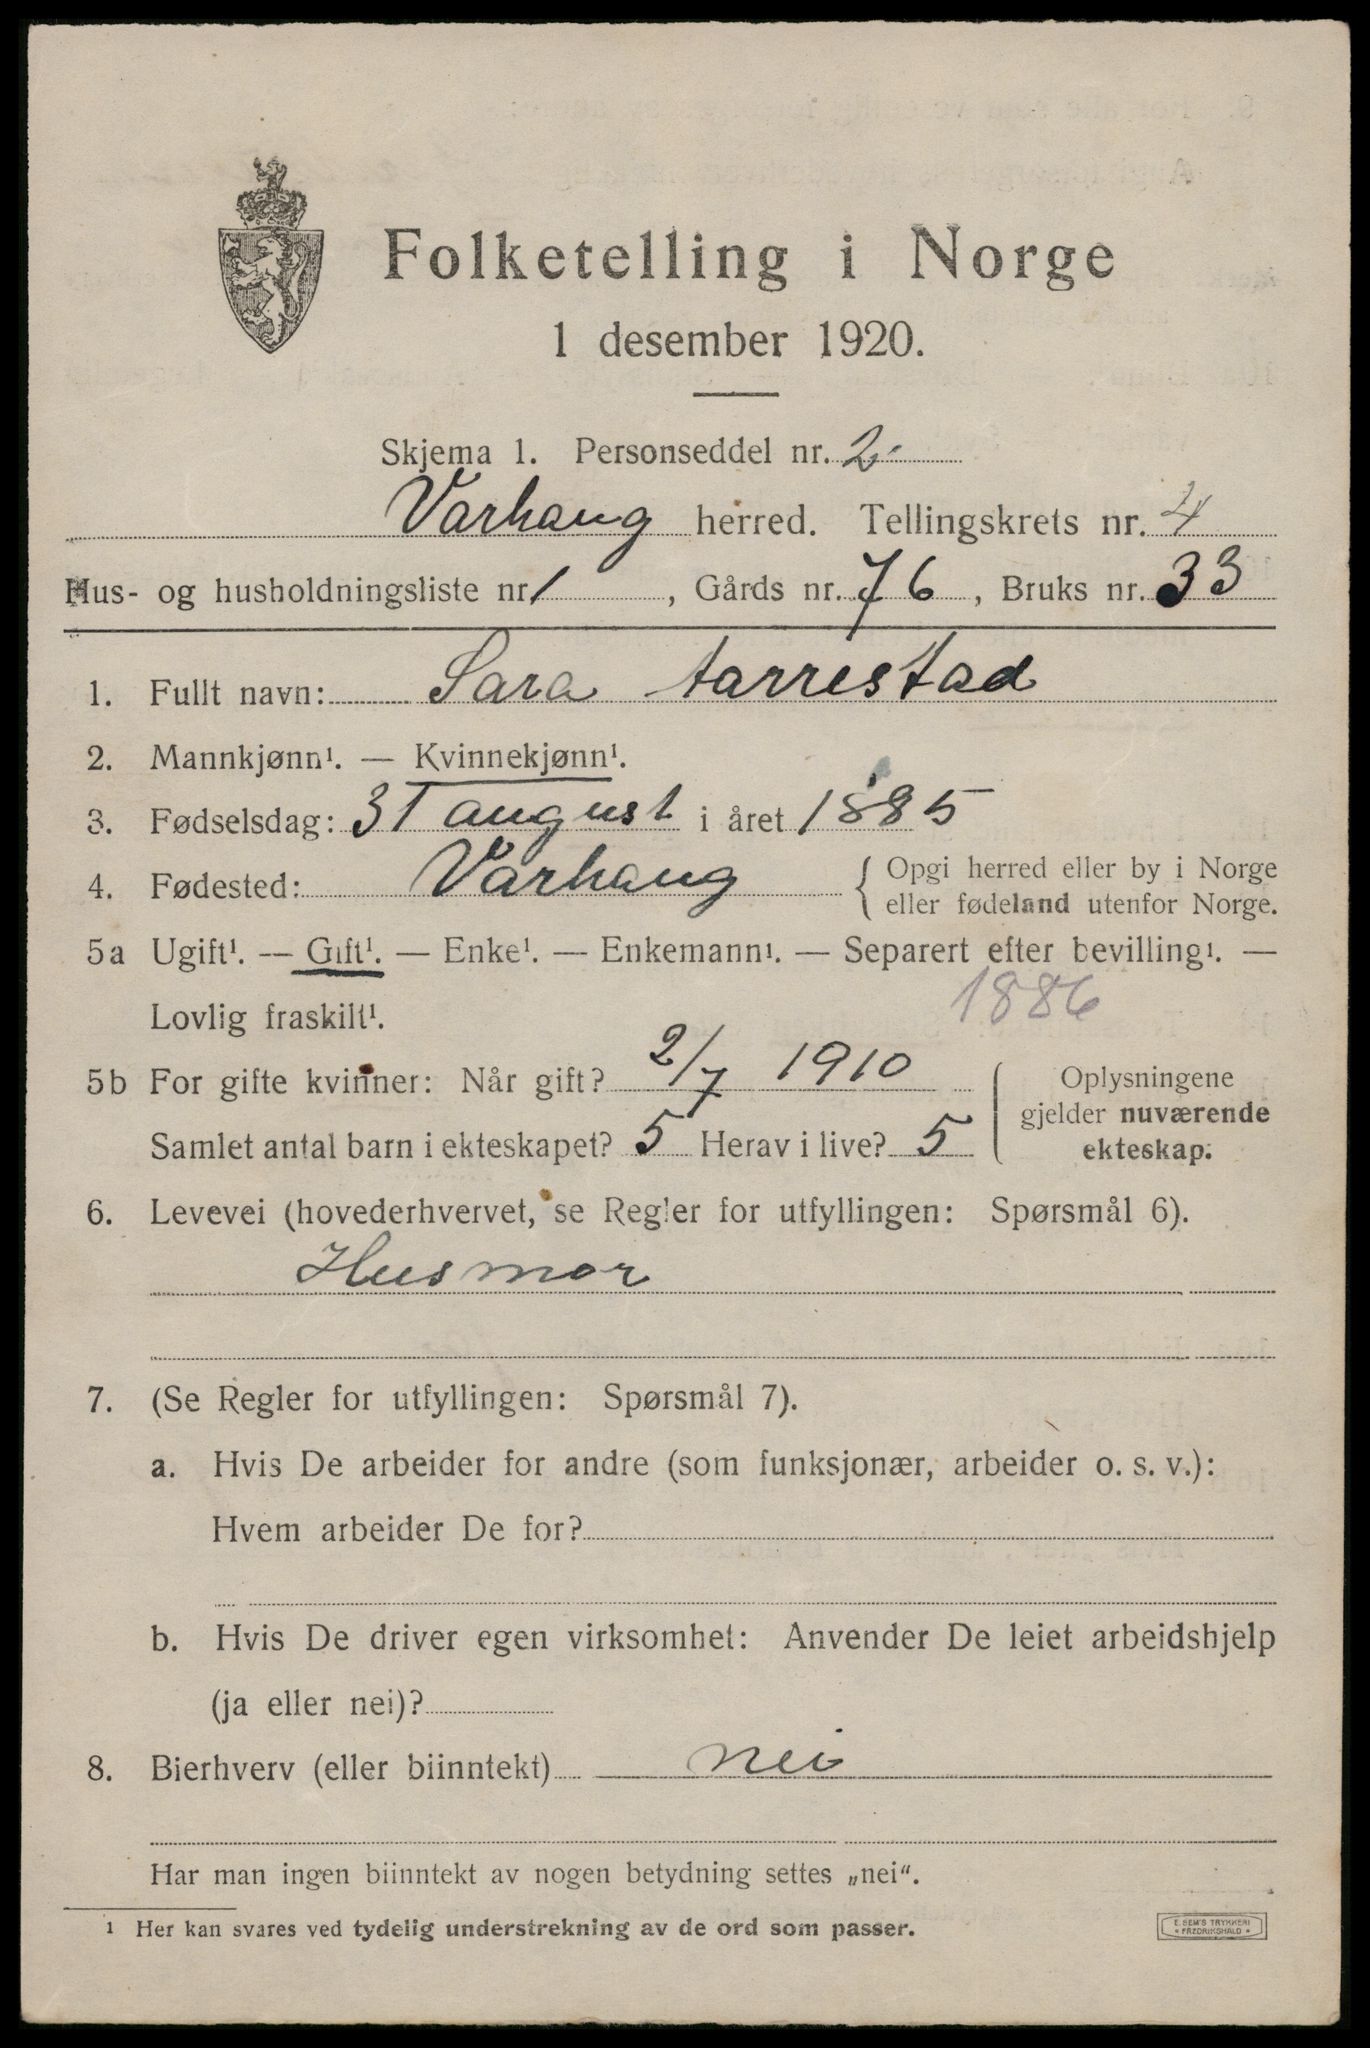 Folketelling i Norge
1 desember 1920.
Skjema 1. Personseddel nr. 2
Varhaug herred. Tellingskrets nr. 4
Hus- og husholdningsliste nr. 1, Gårds nr. 76, Bruks nr. 33
1. Fullt navn: Sara tarrestad
2. Mannkjønn¹. — Kvinnekjønn¹.
3. Fødselsdag: 31 august i året 1885
4. Fødested: Varhaug { Opgi herred eller by i Norge
eller fødeland utenfor Norge.
5a Ugift¹. — Gift¹. — Enke¹. — Enkemann¹. — Separert efter bevilling¹. —
Lovlig fraskilt¹. 1886
5b For gifte kvinner: Når gift? 2/7 1910
Samlet antal barn i ekteskapet? 5 Herav i live? 5
Oplysningene
gjelder nuværende
ekteskap.
6. Levevei (hovederhvervet, se Regler for utfyllingen: Spørsmål 6).
Husmor
7. (Se Regler for utfyllingen: Spørsmål 7).
a. Hvis De arbeider for andre (som funksjonær, arbeider o. s. v.):
Hvem arbeider De for?
b. Hvis De driver egen virksomhet: Anvender De leiet arbeidshjelp
(ja eller nei)?
8. Bierhverv (eller biinntekt) nei
Har man ingen biinntekt av nogen betydning settes „nei“.
¹ Her kan svares ved tydelig understrekning av de ord som passer.
E. SEM'S TRYKKERI
* FREDRIKSHALD *